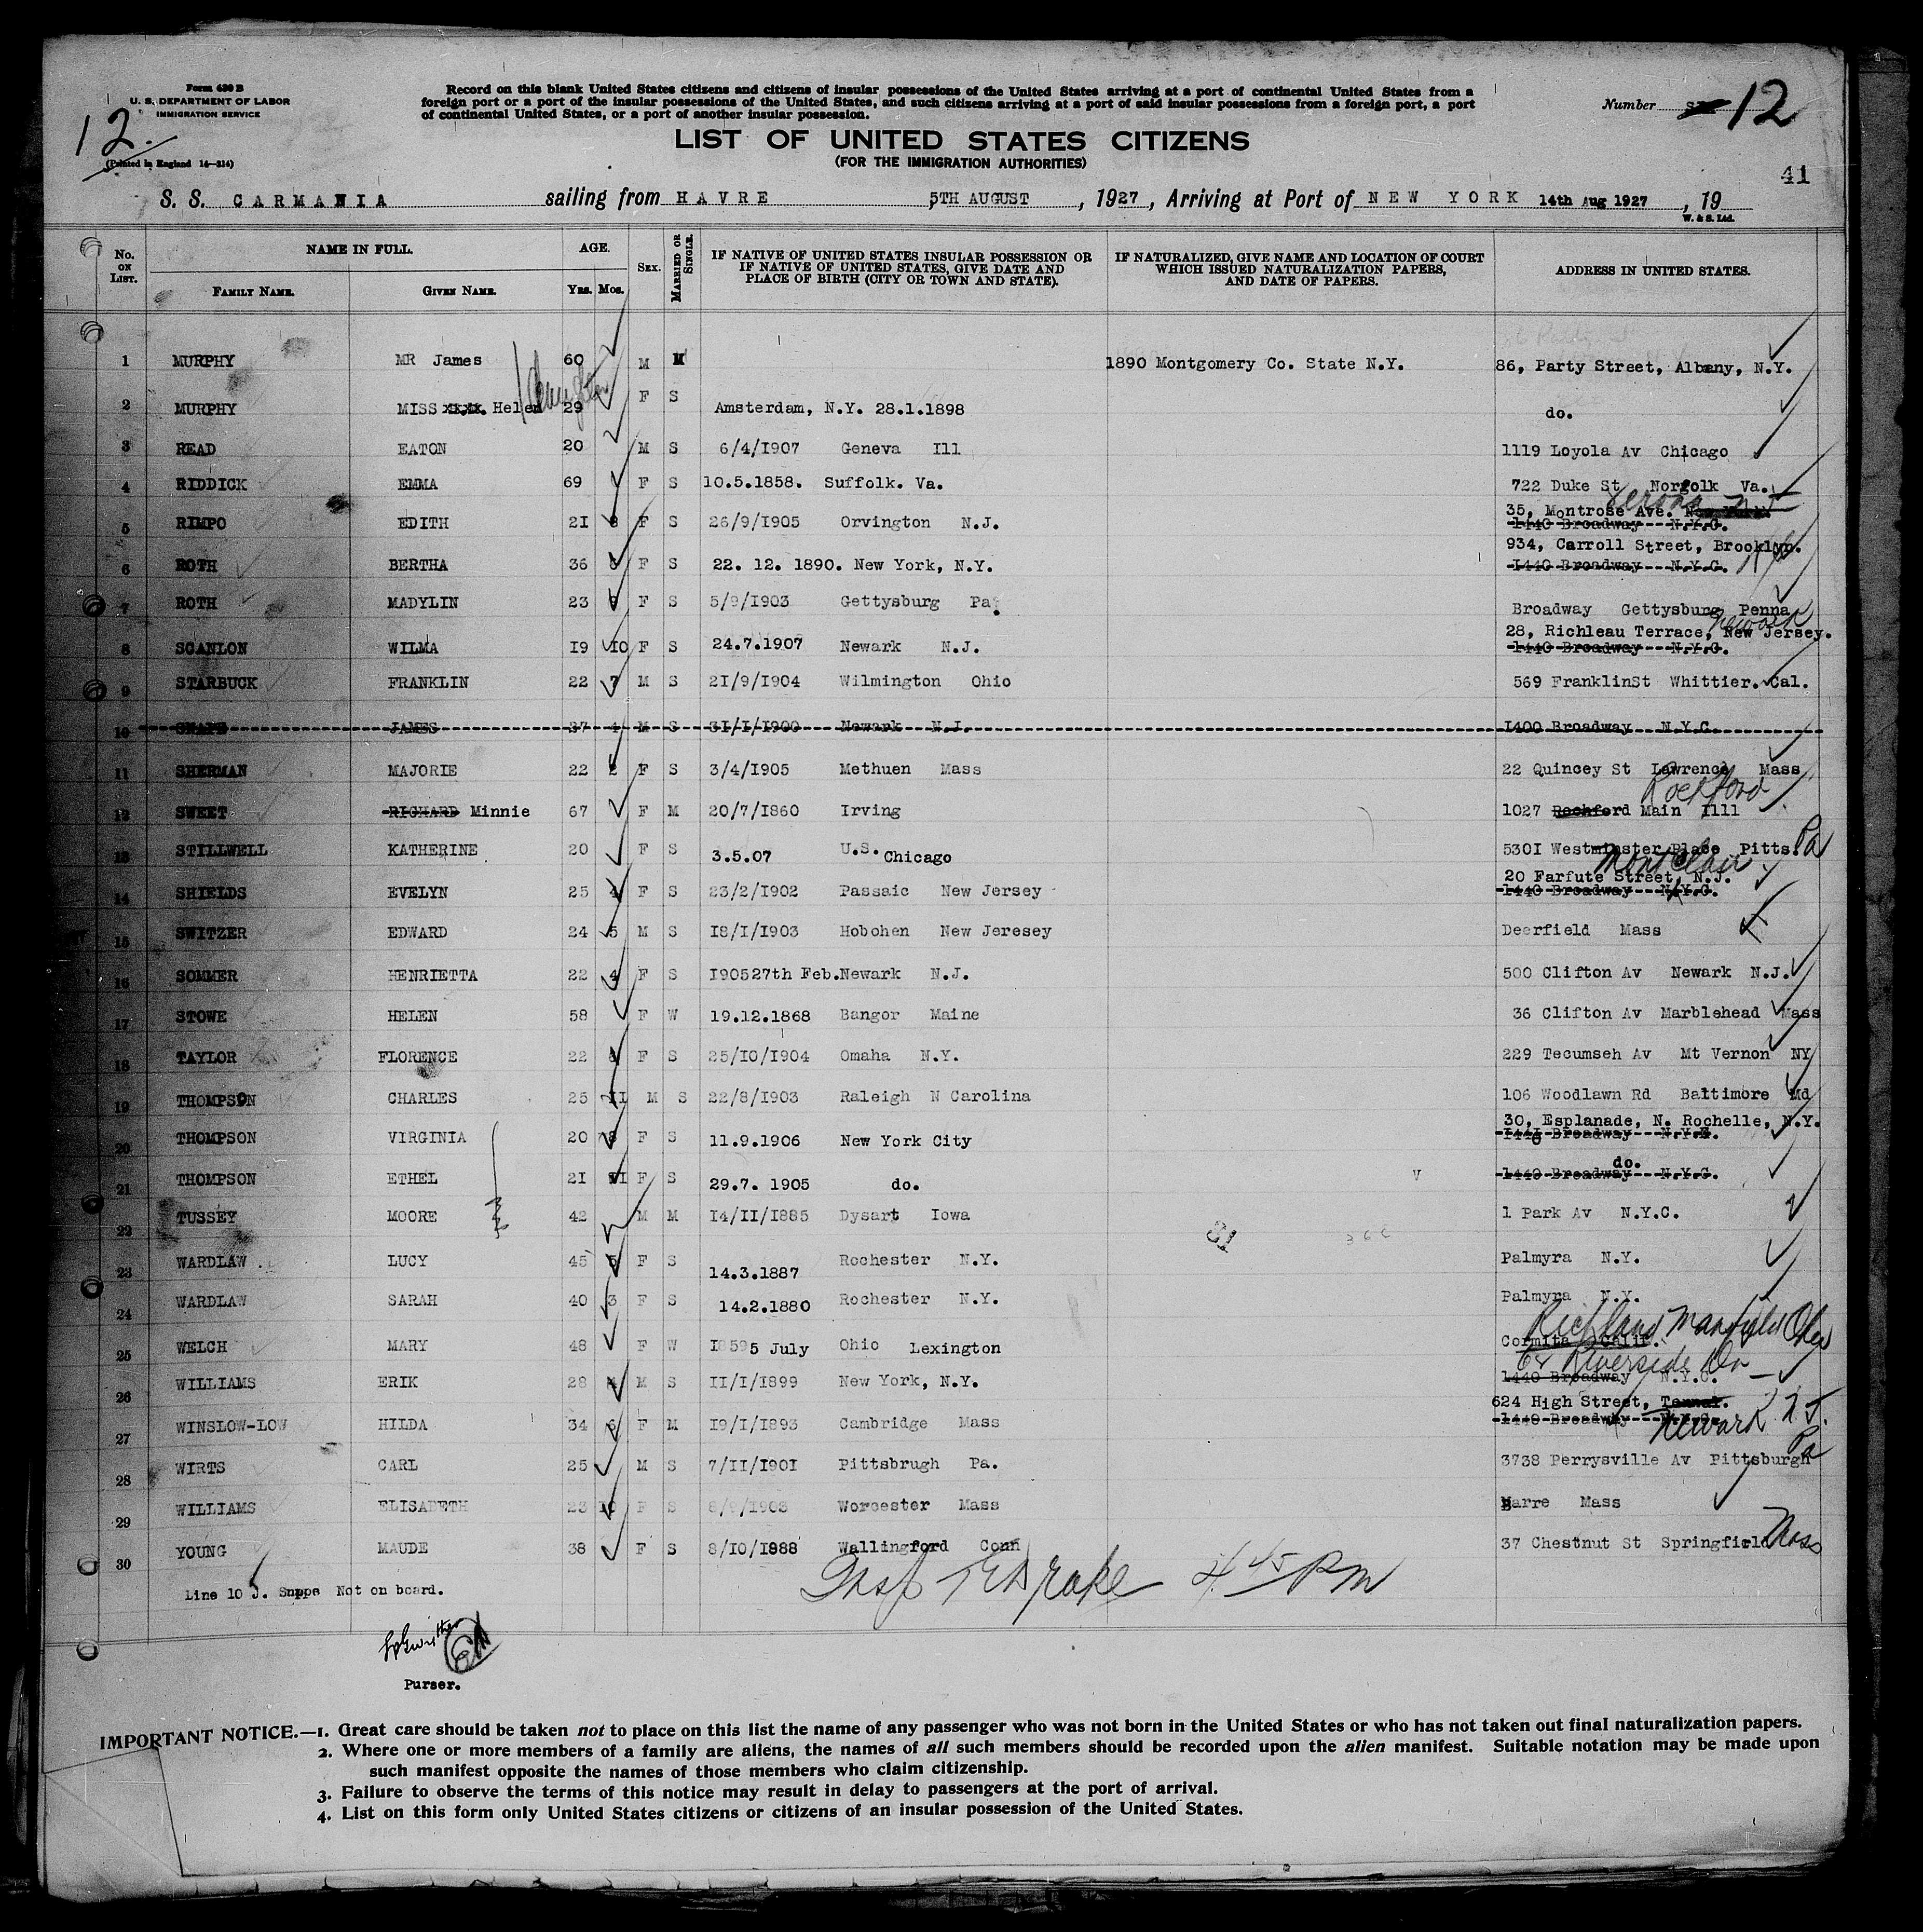 Form 630 B
U. S. DEPARTMENT OF LABOR
IMMIGRATION SERVICE
12.
(Printed in England 14—214)
Record on this blank United States citizens and citizens of insular possessions of the United States arriving at a port of continental United States from a
foreign port or a port of the insular possessions of the United States, and such citizens arriving at a port of said insular possessions from a foreign port, a port
of continental United States, or a port of another insular possession.
Number 12
LIST OF UNITED STATES CITIZENS
(FOR THE IMMIGRATION AUTHORITIES)
41
S. S. CARMANIA sailing from HAVRE 5TH AUGUST , 1927 , Arriving at Port of NEW YORK 14th Aug 1927 , 19
W. & S. Ltd.
No. ON LIST. NAME IN FULL. FAMILY NAME. GIVEN NAME. AGE. YRS. MOS. SEX. MARRIED OR SINGLE. IF NATIVE OF UNITED STATES INSULAR POSSESSION OR IF NATIVE OF UNITED STATES, GIVE DATE AND PLACE OF BIRTH (CITY OR TOWN AND STATE). IF NATURALIZED, GIVE NAME AND LOCATION OF COURT WHICH ISSUED NATURALIZATION PAPERS, AND DATE OF PAPERS. ADDRESS IN UNITED STATES.
1 MURPHY MR James 60 M M 1890 Montgomery Co. State N.Y. 86, Party Street, Albany, N.Y.
2 MURPHY MISS Helen daughter 29 F S Amsterdam, N.Y. 28.1.1898 do.
3 READ EATON 20 M S 6/4/1907 Geneva Ill 1119 Loyola Av Chicago
4 RIDDICK EMMA 69 F S 10.5.1858. Suffolk. Va. 722 Duke St Norfolk Va.
5 RIMPO EDITH 21 8 F S 26/9/1905 Orvington N.J. 35, Montrose Ave. New York. Verona N J
1440 Broadway N.Y.C.
6 ROTH BERTHA 36 6 F S 22. 12. 1890. New York, N.Y. 934, Carroll Street, Brooklyn. N.Y.
1440 Broadway N.Y.C.
7 ROTH MADYLIN 23 9 F S 5/9/1903 Gettysburg Pa. Broadway Gettysburg Penna
8 SCANLON WILMA 19 10 F S 24.7.1907 Newark N.J. 28, Richleau Terrace, New Jersey. Newark
1440 Broadway N.Y.C.
9 STARBUCK FRANKLIN 22 7 M S 21/9/1904 Wilmington Ohio 569 FranklinSt Whittier. Cal.
10 JAMES 27 4 M S 31/1/1900 Newark N.J. 1400 Broadway N.Y.C.
11 SHERMAN MAJORIE 22 2 F S 3/4/1905 Methuen Mass 22 Quincey St Lawrence Mass
12 SWEET RICHARD Minnie 67 F M 20/7/1860 Irving 1027 Rochford Main Illl Rockford
13 STILLWELL KATHERINE 20 F S 3.5.07 U.S. Chicago 5301 Westminster Place Pitts. Pa
14 SHIELDS EVELYN 25 4 F S 23/2/1902 Passaic New Jersey 20 Farfute Street, N.J. Montclair
1440 Broadway N.Y.C.
15 SWITZER EDWARD 24 5 M S 18/1/1903 Hobohen New Jeresey Deerfield Mass
16 SOMMER HENRIETTA 22 4 F S 190527th Feb.Newark N.J. 500 Clifton Av Newark N.J.
17 STOWE HELEN 58 F W 19.12.1868 Bangor Maine 36 Clifton Av Marblehead Mass
18 TAYLOR FLORENCE 22 8 F S 25/10/1904 Omaha N.Y. 229 Tecumseh Av Mt Vernon NY
19 THOMPSON CHARLES 25 11 M S 22/8/1903 Raleigh N Carolina 106 Woodlawn Rd Baltimore Md
20 THOMPSON VIRGINIA 20 8 F S 11.9.1906 New York City 30, Esplanade, N. Rochelle, N.Y.
1440 Broadway N.Y.
21 THOMPSON ETHEL 21 11 F S 29.7. 1905 do. do.
1440 Broadway N.Y.C.
22 TUSSEY MOORE 42 M M 14/11/1885 Dysart Iowa 1 Park Av N.Y.C.
23 WARDLAW LUCY 45 5 F S 14.3.1887 Rochester N.Y. Palmyra N.Y.
24 WARDLAW SARAH 40 3 F S 14.2.1880 Rochester N.Y. Palmyra N.Y.
25 WELCH MARY 48 F W 18595 July Ohio Lexington Cormita Calif. Richland Mansfield Ohio
26 WILLIAMS ERIK 28 4 M S 11/1/1899 New York, N.Y. 64 Riverside Dr
1440 Broadway N.Y.C.
27 WINSLOW-LOW HILDA 34 6 F M 19/1/1893 Cambridge Mass 624 High Street, Newark N J.
1440 Broadway N.Y.C.
28 WIRTS CARL 25 M S 7/11/1901 Pittsbrugh Pa. 3738 Perrysville Av Pittsburgh Pa
29 WILLIAMS ELISABETH 23 10 F S 8/9/1903 Worcester Mass Barre Mass
30 YOUNG MAUDE 38 F S 8/10/1988 Wallingford Conn 37 Chestnut St Springfield Mass
Line 10 J. Snppe Not on board.
Insp T E Drake 4 45 PM
Purser.
IMPORTANT NOTICE.—1. Great care should be taken not to place on this list the name of any passenger who was not born in the United States or who has not taken out final naturalization papers.
2. Where one or more members of a family are aliens, the names of all such members should be recorded upon the alien manifest. Suitable notation may be made upon
such manifest opposite the names of those members who claim citizenship.
3. Failure to observe the terms of this notice may result in delay to passengers at the port of arrival.
4. List on this form only United States citizens or citizens of an insular possession of the United States.